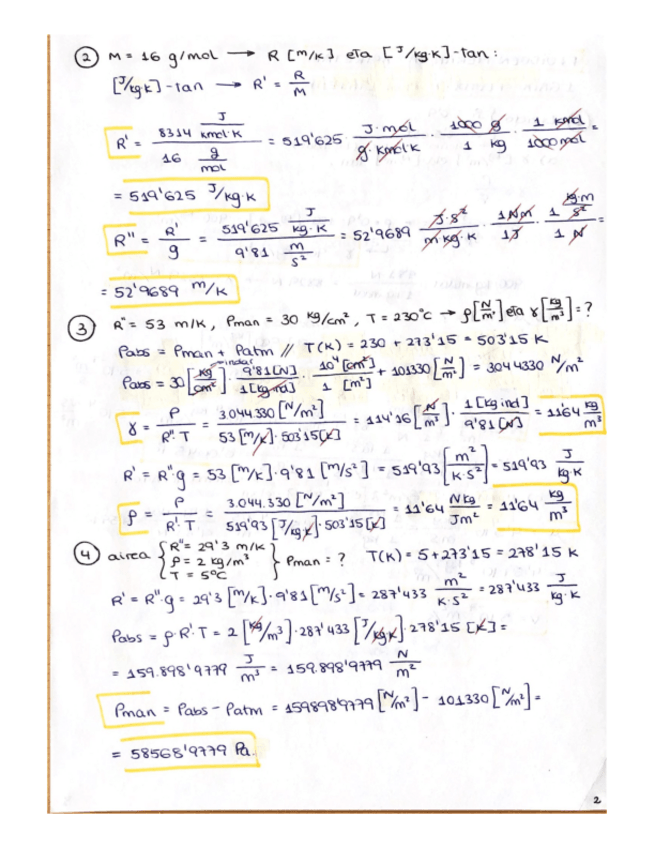 ② M = 16 g/mol → R [m/K] eta [J/kg·K]-tan:
[J/kg·K]-tan → R' = R/M
R' = (8314 J/kmol·K) / (16 g/mol) = 519'625 · (J·mol)/(g·kmol·K) · (1000 g)/(1 kg) · (1 kmol)/(1000 mol) =
= 519'625 J/kg·K
R'' = R'/g = (519'625 J/kg·K) / (9'81 m/s²) = 52'9689 (J·s²)/(m·kg·K) · (1 N·m)/(1 J) · (1 kg·m/s²)/(1 N) =
= 52'9689 m/K
③ R'' = 53 m/K, Pman = 30 kg/cm², T = 230°C → ρ[N/m³] eta γ[kg/m³] = ?
Pabs = Pman + Patm // T(K) = 230 + 273'15 = 503'15 K
Pabs = 30 [kg-indar/cm²] · 9'81[N]/1[kg ind] · 10⁴[cm²]/1 [m²] + 101330 [N/m²] = 3044330 N/m²
γ = P/(R''·T) = 3.044.330 [N/m²] / (53 [m/K] · 503'15 [K]) = 114'16 [N/m³] · 1 [kg ind]/9'81 [N] = 11'64 kg/m³
R' = R''·g = 53 [m/K] · 9'81 [m/s²] = 519'93 [m²/K·s²] = 519'93 J/kg·K
ρ = P/(R'·T) = 3.044.330 [N/m²] / (519'93 [J/kg·K] · 503'15 [K]) = 11'64 N kg/J m² = 11'64 kg/m³
④ airea { R'' = 29'3 m/K
ρ = 2 kg/m³
T = 5°C } Pman = ? T(K) = 5 + 273'15 = 278'15 K
R' = R''·g = 29'3 [m/K] · 9'81 [m/s²] = 287'433 m²/K·s² = 287'433 J/kg·K
Pabs = ρ·R'·T = 2 [kg/m³] · 287'433 [J/kg·K] · 278'15 [K] =
= 159.898'9779 J/m³ = 159.898'9779 N/m²
Pman = Pabs − Patm = 159898'9779 [N/m²] − 101330 [N/m²] =
= 58568'9779 Pa.
2